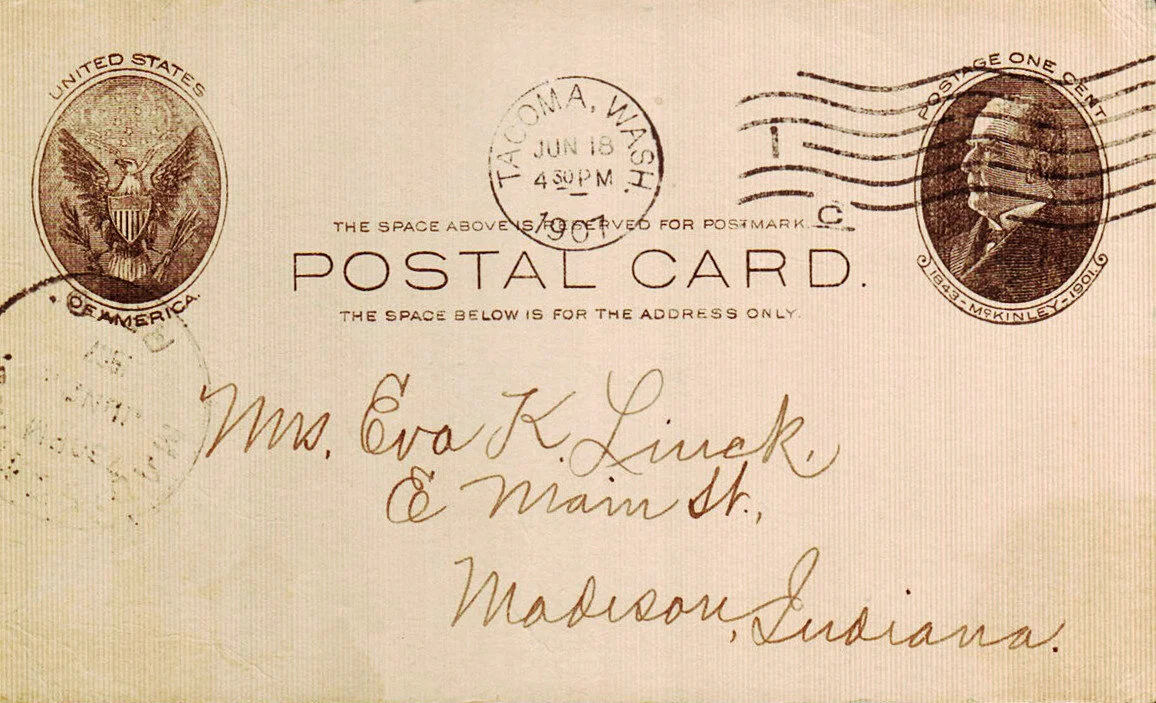 UNITED STATES
OF AMERICA.
TACOMA, WASH.
JUN 18
4 30 PM
1907
1
C
POSTAGE ONE CENT
1843-McKINLEY-1901.
THE SPACE ABOVE IS RESERVED FOR POSTMARK.
POSTAL CARD.
THE SPACE BELOW IS FOR THE ADDRESS ONLY.
Mrs. Eva K. Linck.
E Main St.,
Madison, Indiana.